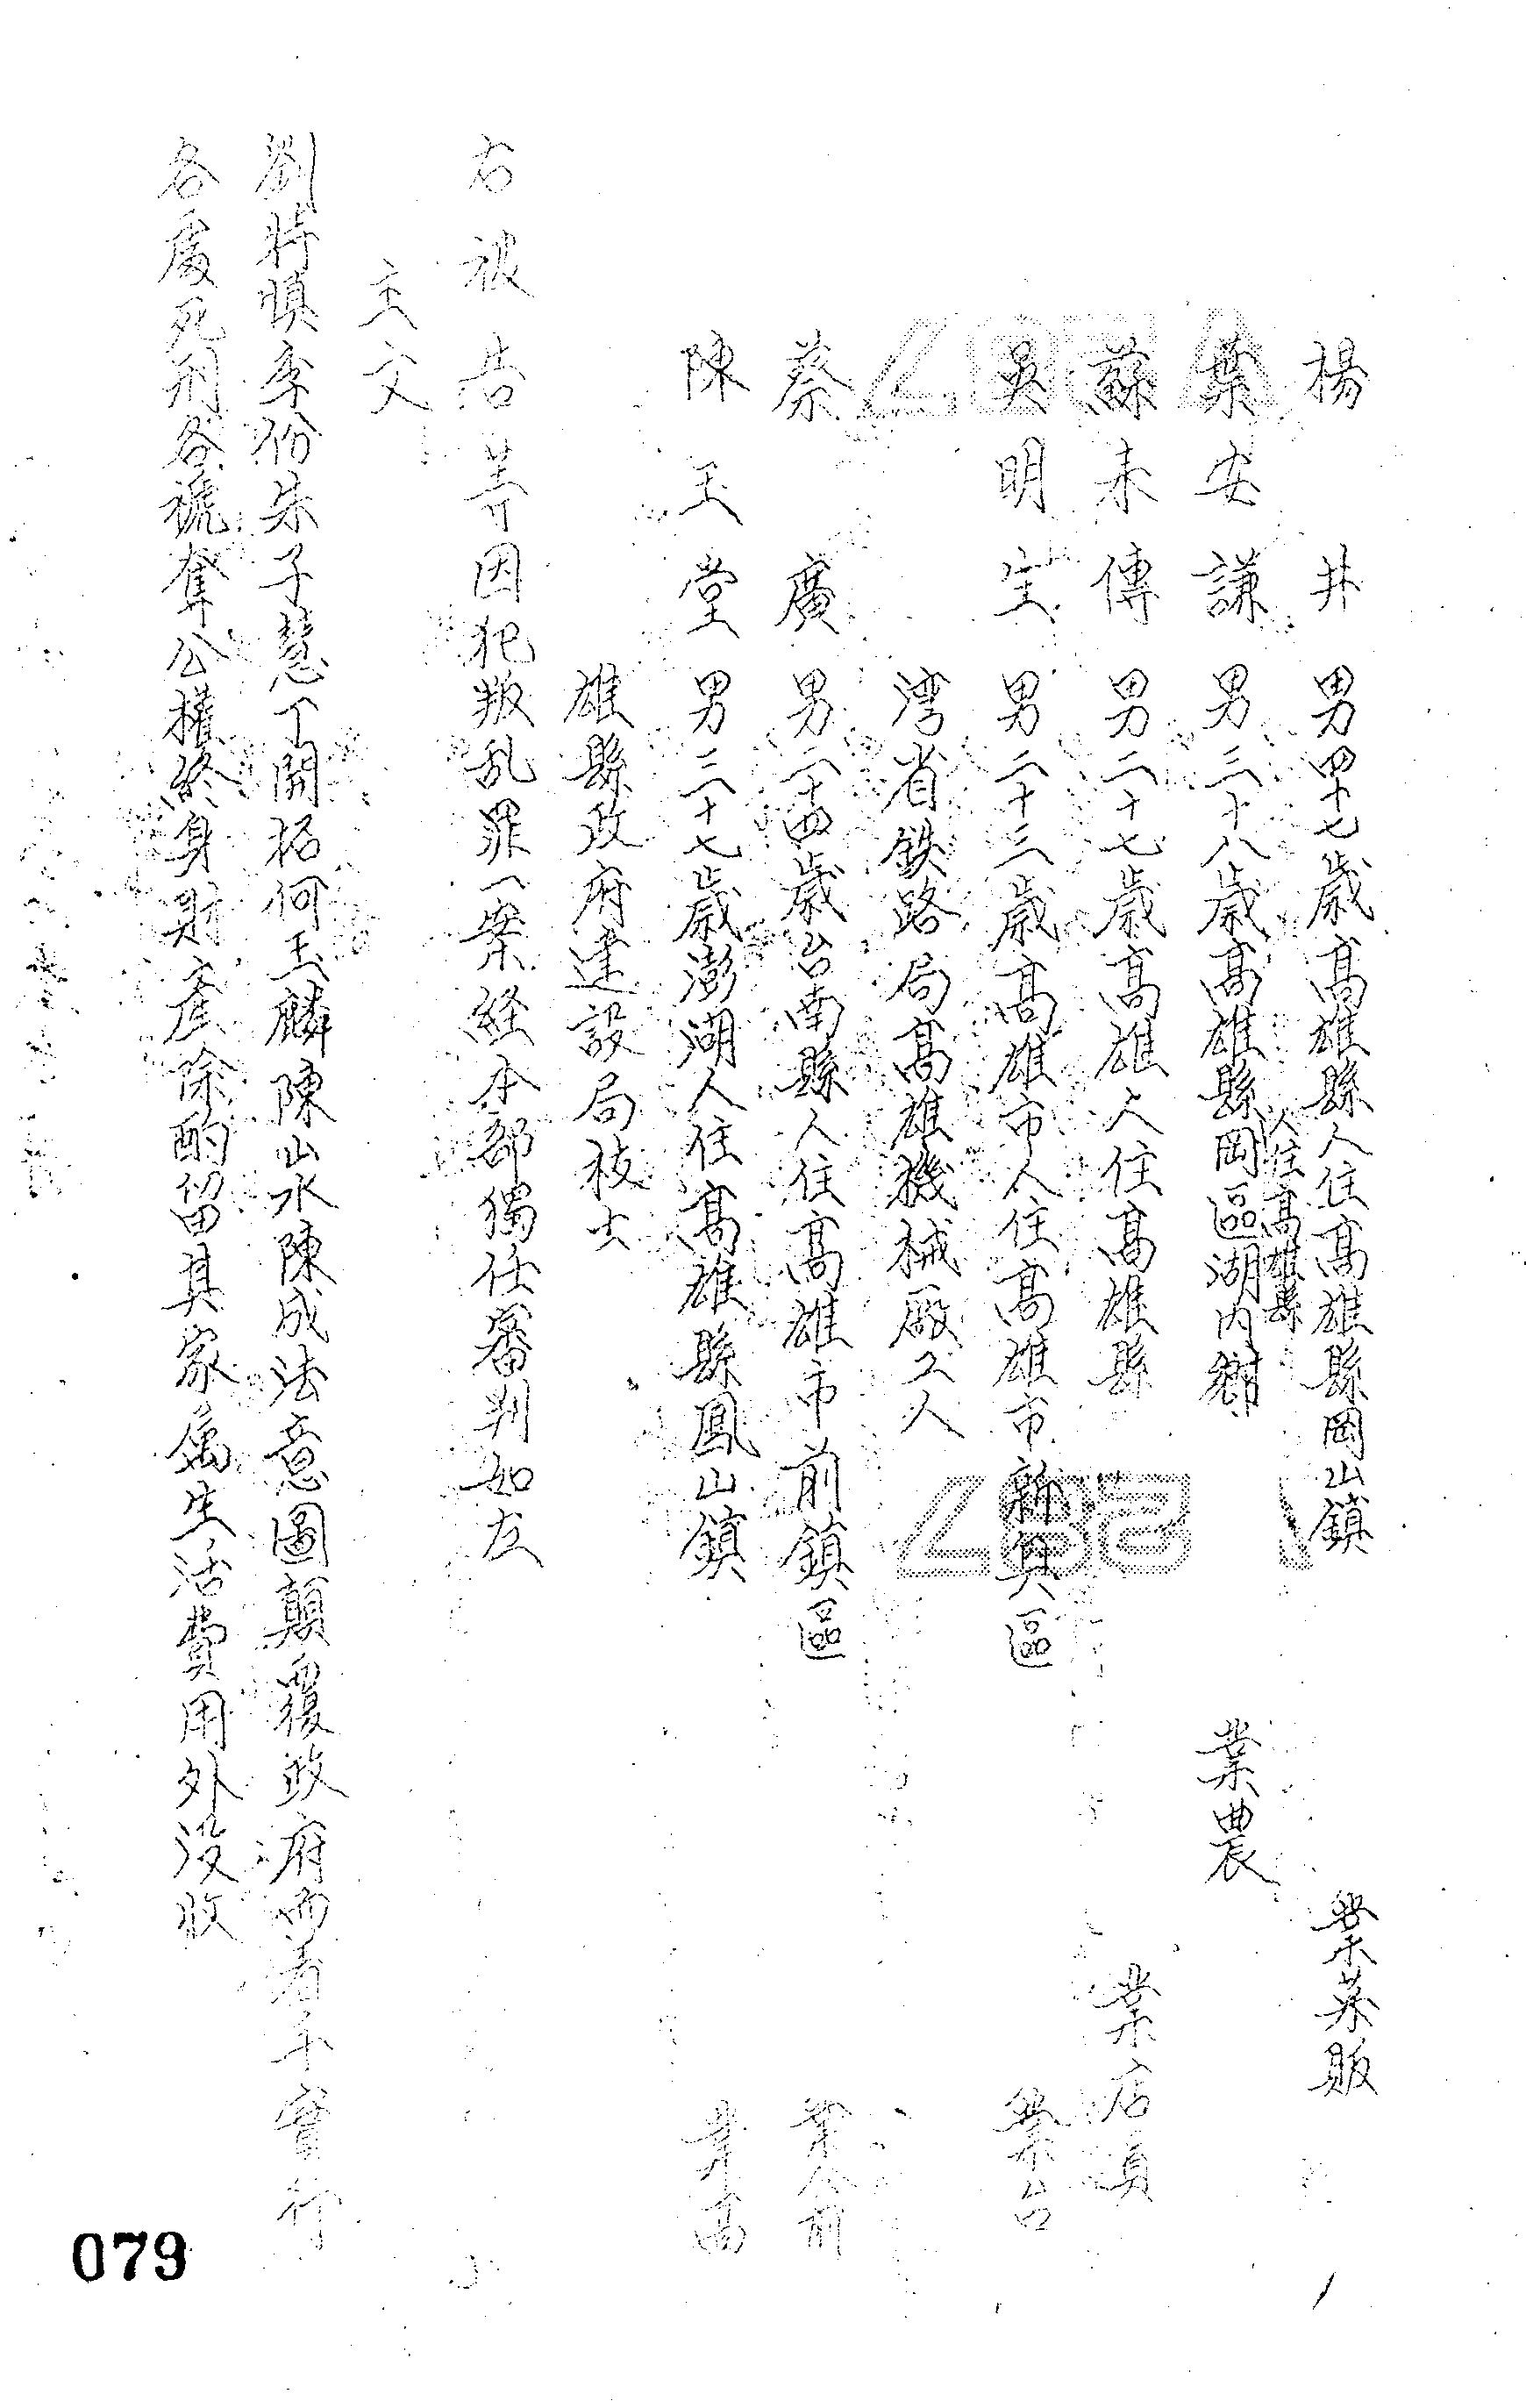 楊　井　男四十七歲高雄縣人住高雄縣岡山鎮　業菜販
葉安謙　男三十八歲高雄縣人住高雄縣岡區湖內鄉　業農
蘇未傳　男二十七歲高雄人住高雄縣　業店員
吳明生　男二十三歲高雄市人住高雄市新興區　業台
湾省鉄路局高雄機械廠工人
蔡　廣　男二十四歲台南縣人住高雄市前鎮區　業仝前
陳玉堂　男三十七歲澎湖人住高雄縣鳳山鎮　業高
雄縣政府建設局技士
右被告等因犯叛乱罪一案経本部獨任審判如左
主文
劉特慎李份朱子慧丁開拓何玉麟陳山水陳成法意圖顛覆政府而着手實行
各處死刑各褫奪公權終身財產除酌留其家屬生活費用外沒收
079